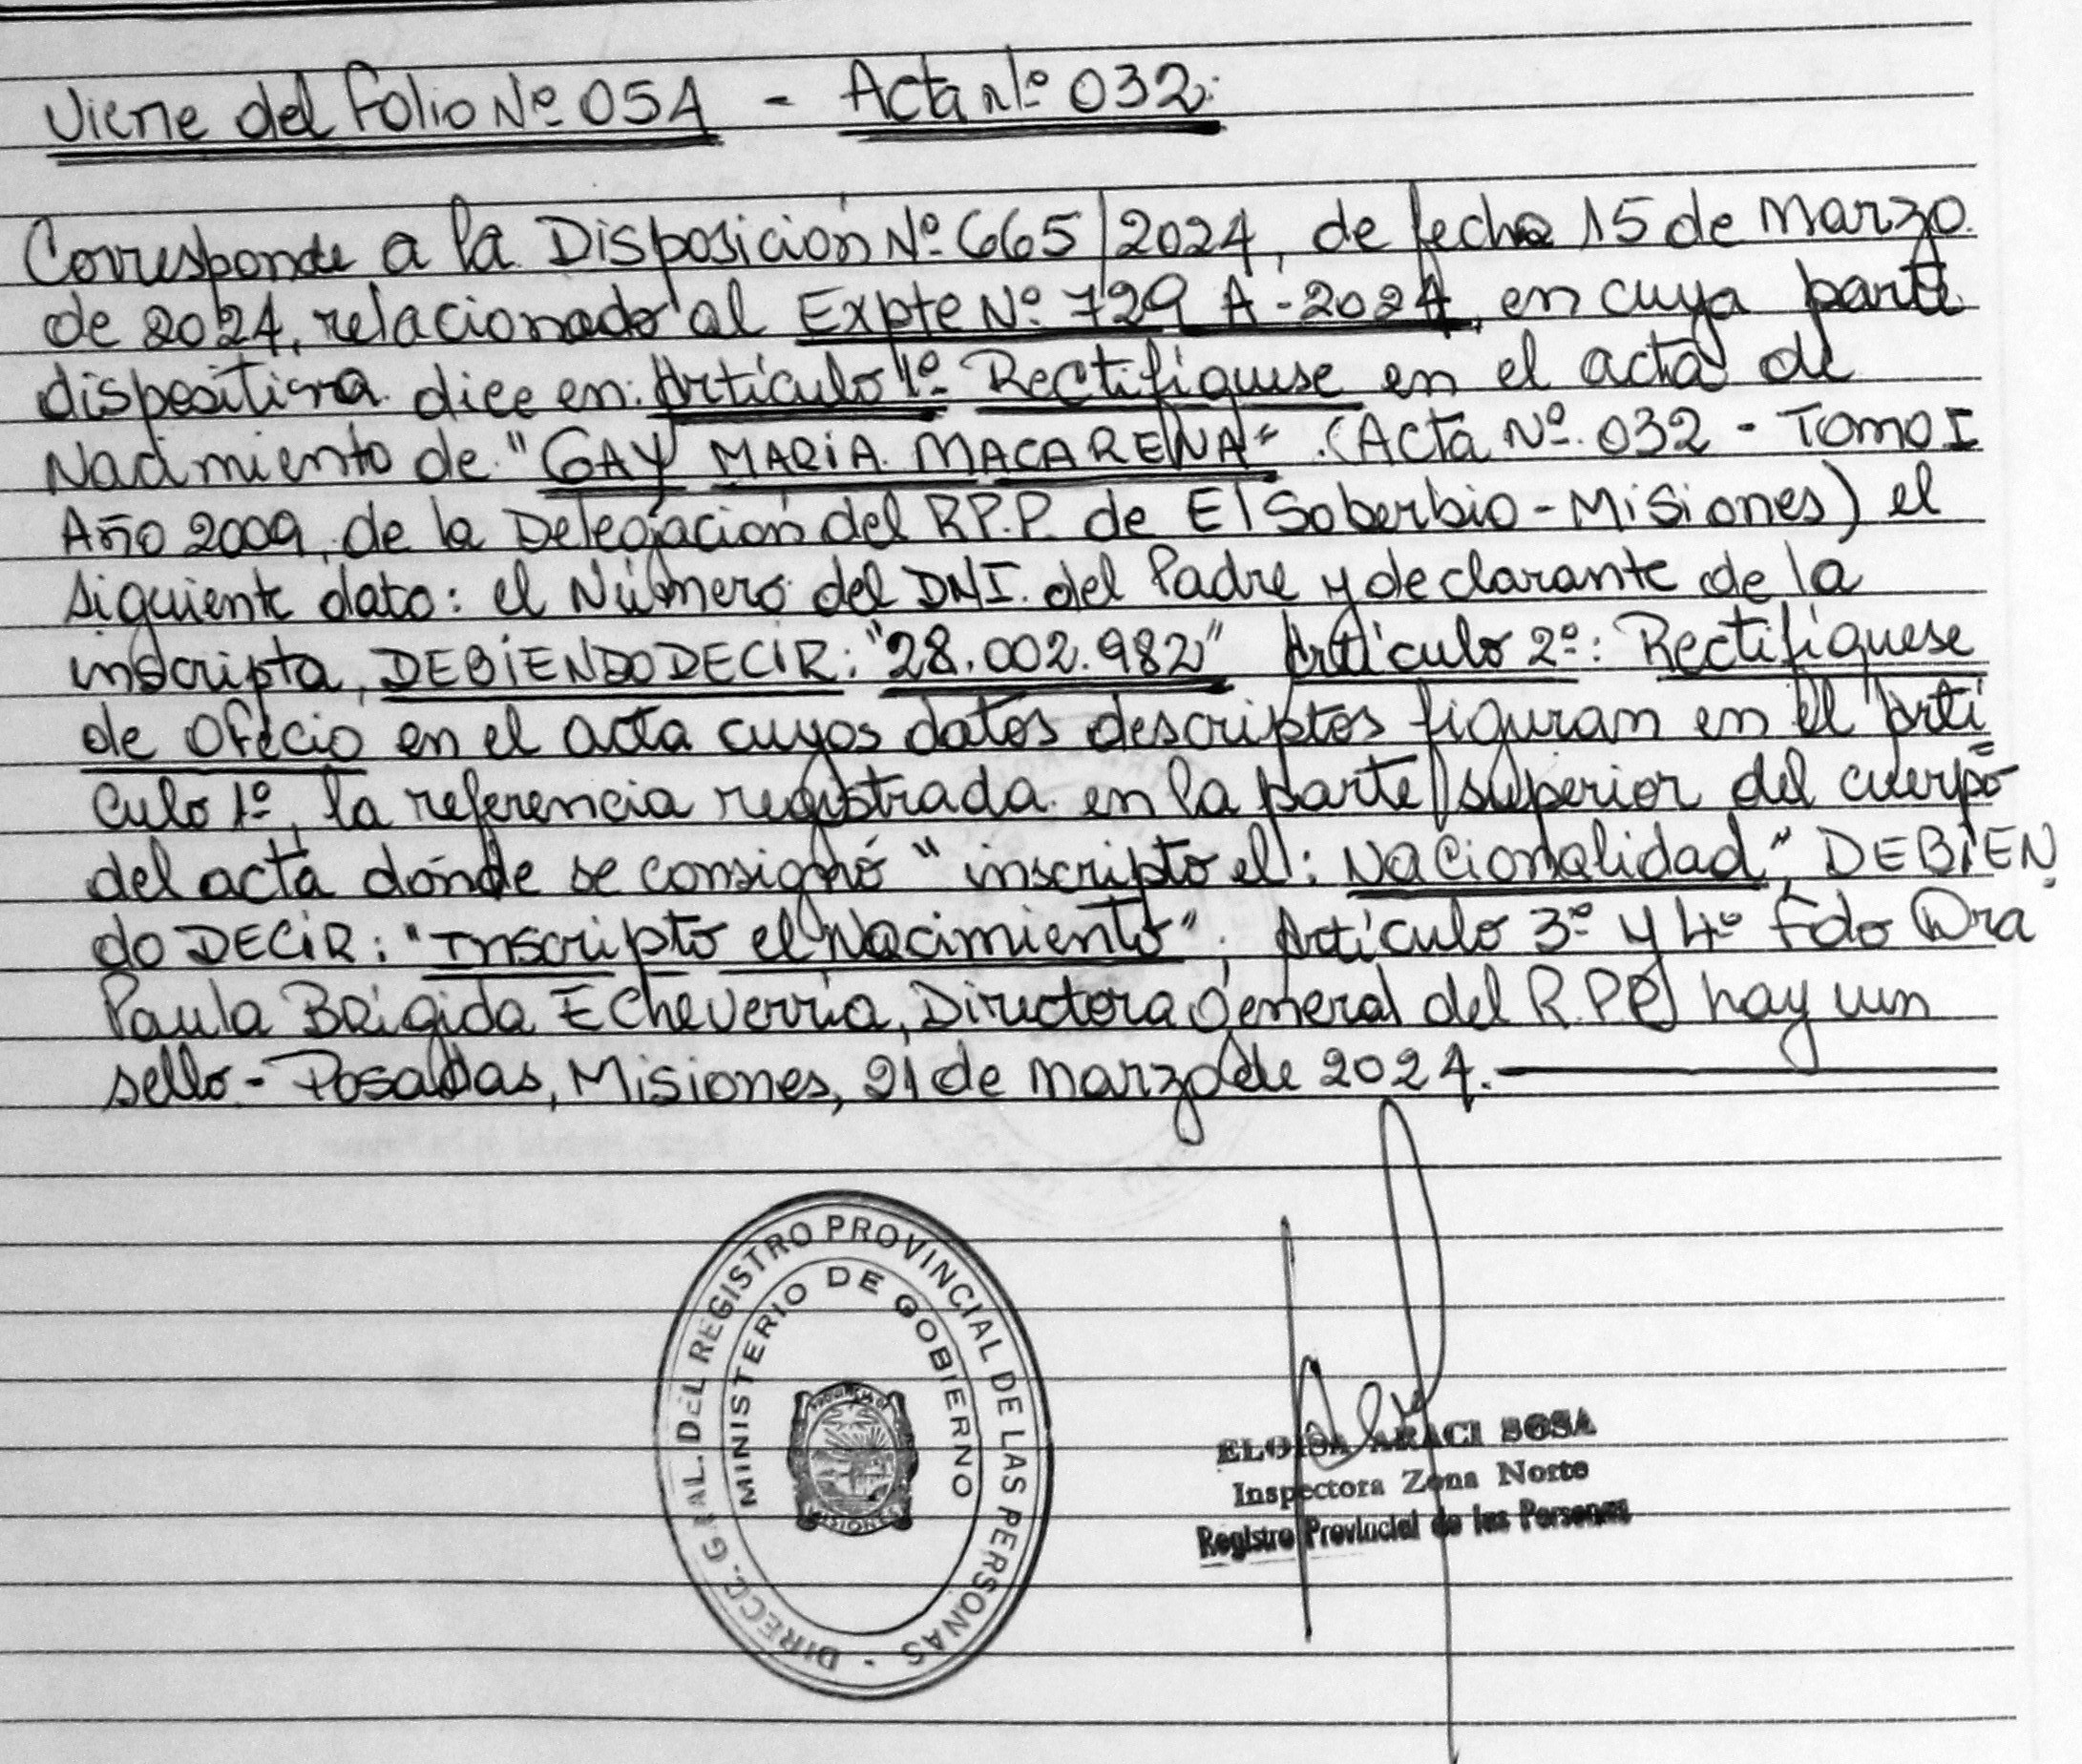 Viene del Folio Nº 054 - Acta Nº 032.
Corresponde a la Disposición Nº 665/2024, de fecha 15 de Marzo.
de 2024, relacionado al Expte Nº 729 A-2024, en cuya parte
dispositiva dice en: Artículo 1º Rectifíquese en el acta de
Nacimiento de "GAY MARIA MACARENA" (Acta Nº 032 - Tomo I
Año 2009, de la Delegación del R.P.P. de El Soberbio - Misiones) el
siguiente dato: el Número del DNI. del Padre y declarante de la
inscripta, DEBIENDO DECIR: "28.002.982" Artículo 2º: Rectifíquese
de Oficio en el acta cuyos datos descriptos figuran en el Artí
culo 1º, la referencia registrada en la parte superior del cuerpo
del acta dónde se consignó "inscripto el: Nacionalidad", DEBIEN
do DECIR: "Inscripto el Nacimiento". Artículo 3º y 4º Fdo Dra
Paula Brígida Echeverría, Directora General del R.P.P. hay un
sello.- Posadas, Misiones, 21 de marzo de 2024.
DIRECC. GRAL. DEL REGISTRO PROVINCIAL DE LAS PERSONAS -
MINISTERIO DE GOBIERNO
MISIONES
ELOISA ARACI SOSA
Inspectora Zona Norte
Registro Provincial de las Personas